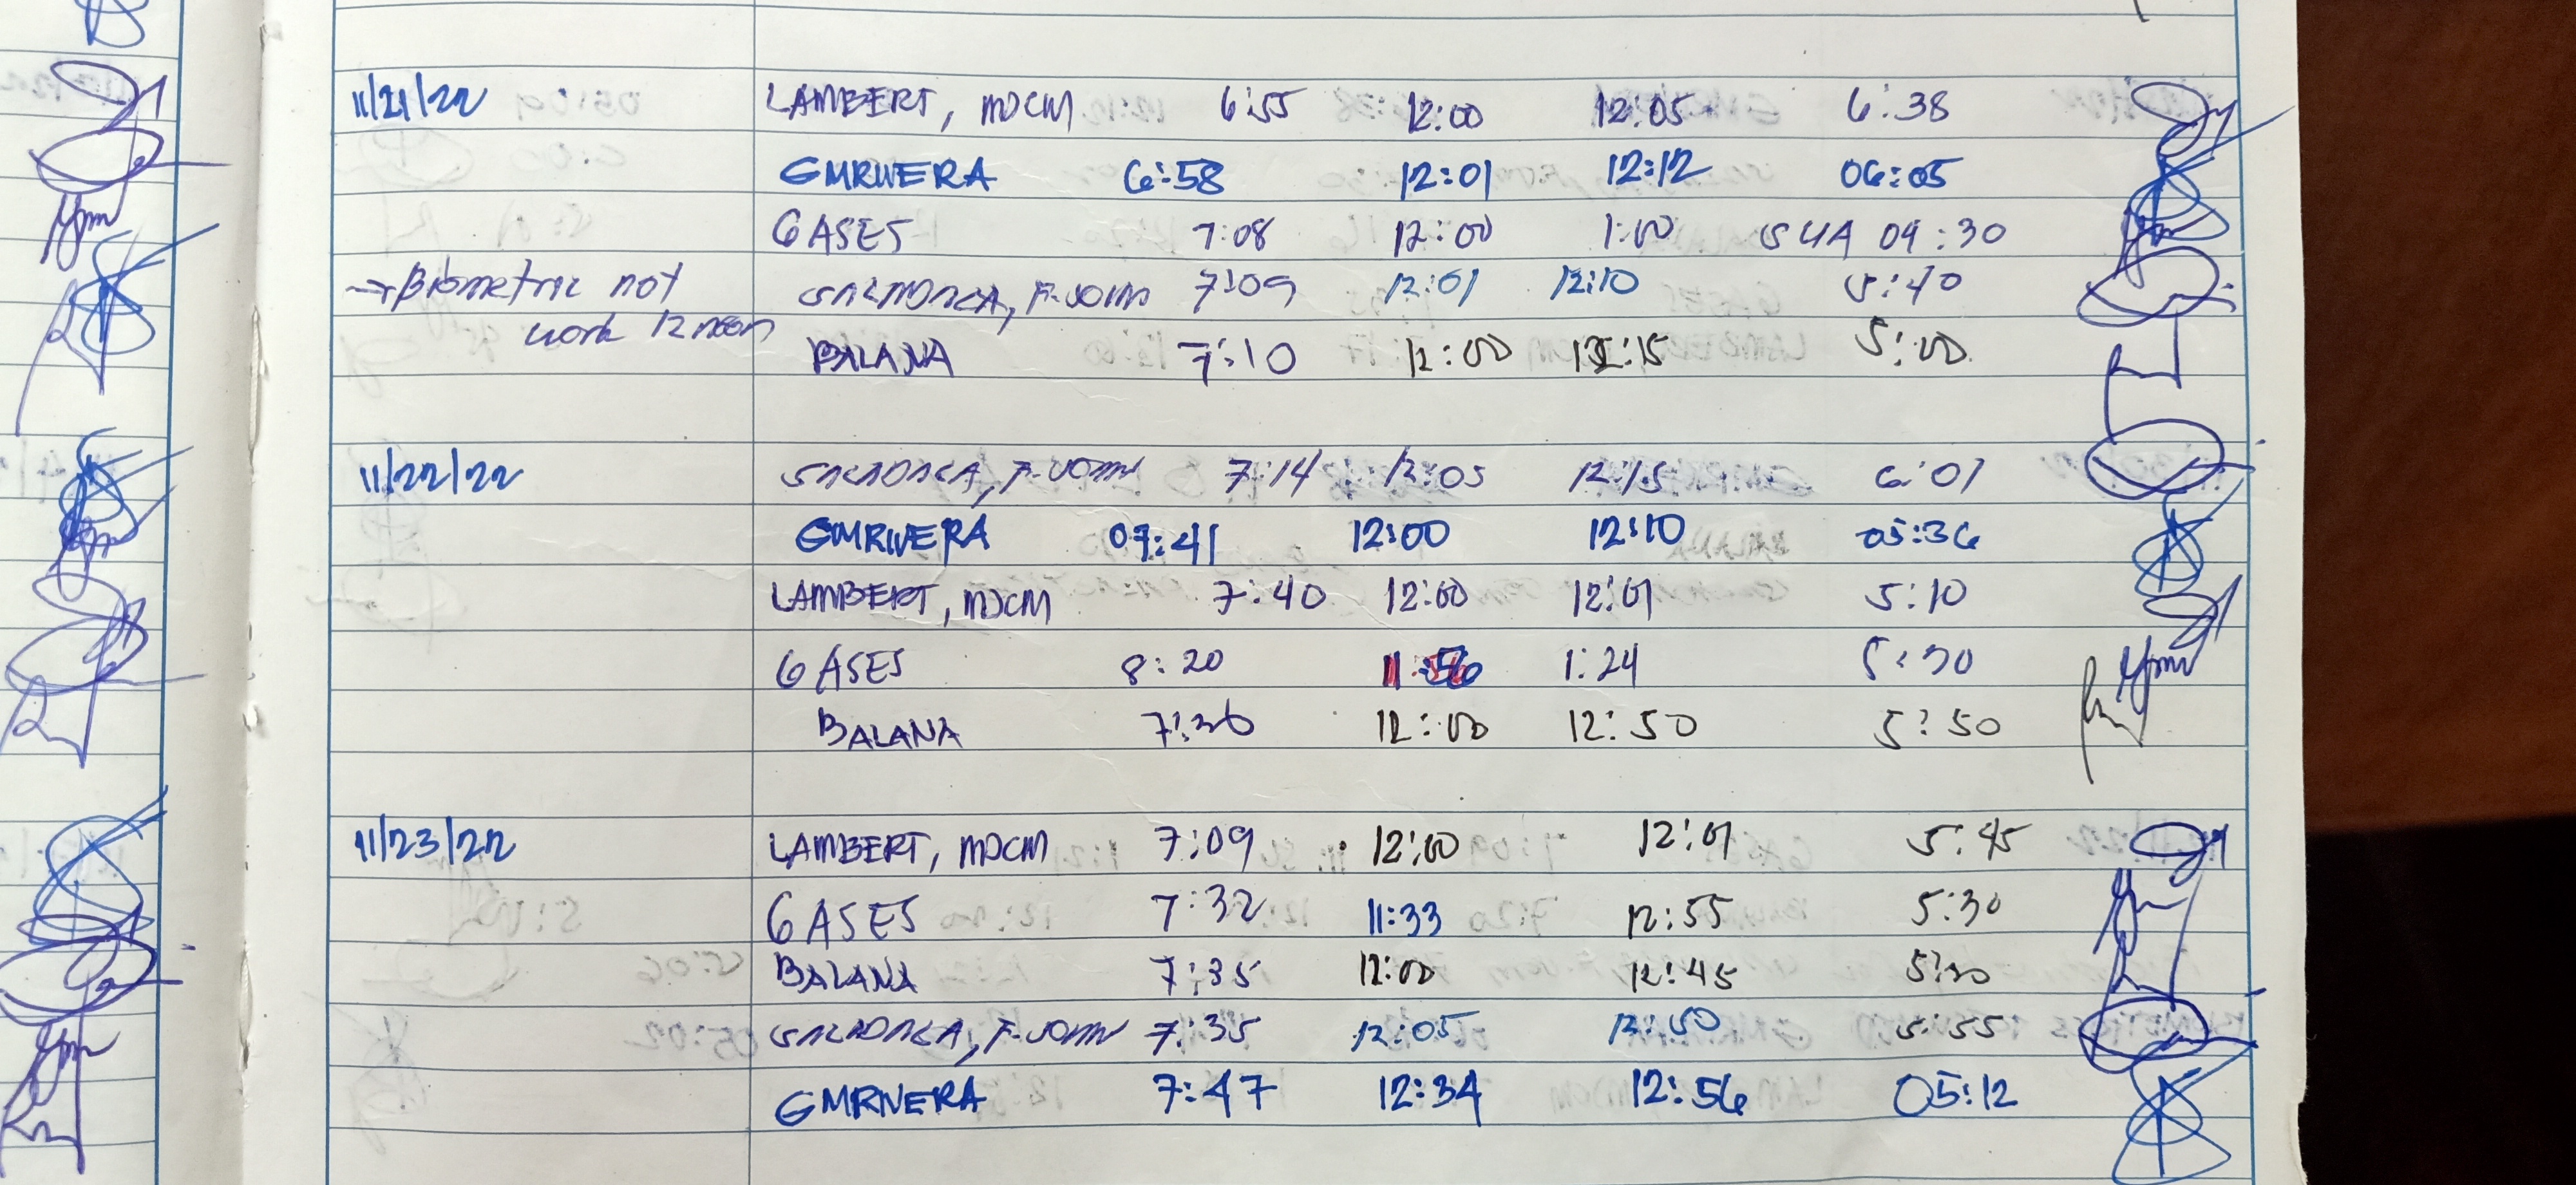 11/21/22 LAMBERT, MJCM 6:55 12:00 12:05 6:38
GMRIVERA 6:58 12:01 12:12 06:05
GASES 7:08 12:00 1:00 09:30
→ Biometric not F-JOHN 7:09 12:01 12:10 5:40
work 12 noon
BALANA 7:10 12:00 12:15 5:00
11/22/22 F-JOHN 7:14 12:05 12:15 6:01
GMRIVERA 07:41 12:00 12:10 05:36
LAMBERT, MJCM 7:40 12:00 12:01 5:10
GASES 8:20 11:56 1:24 5:30
BALANA 7:30 12:00 12:50 5:50
11/23/22 LAMBERT, MJCM 7:09 12:00 12:01 5:45
GASES 7:32 11:33 12:55 5:30
BALANA 7:35 12:00 12:45 5:30
F-JOHN 7:35 12:05 12:50 5:55
GMRIVERA 7:47 12:34 12:56 05:12